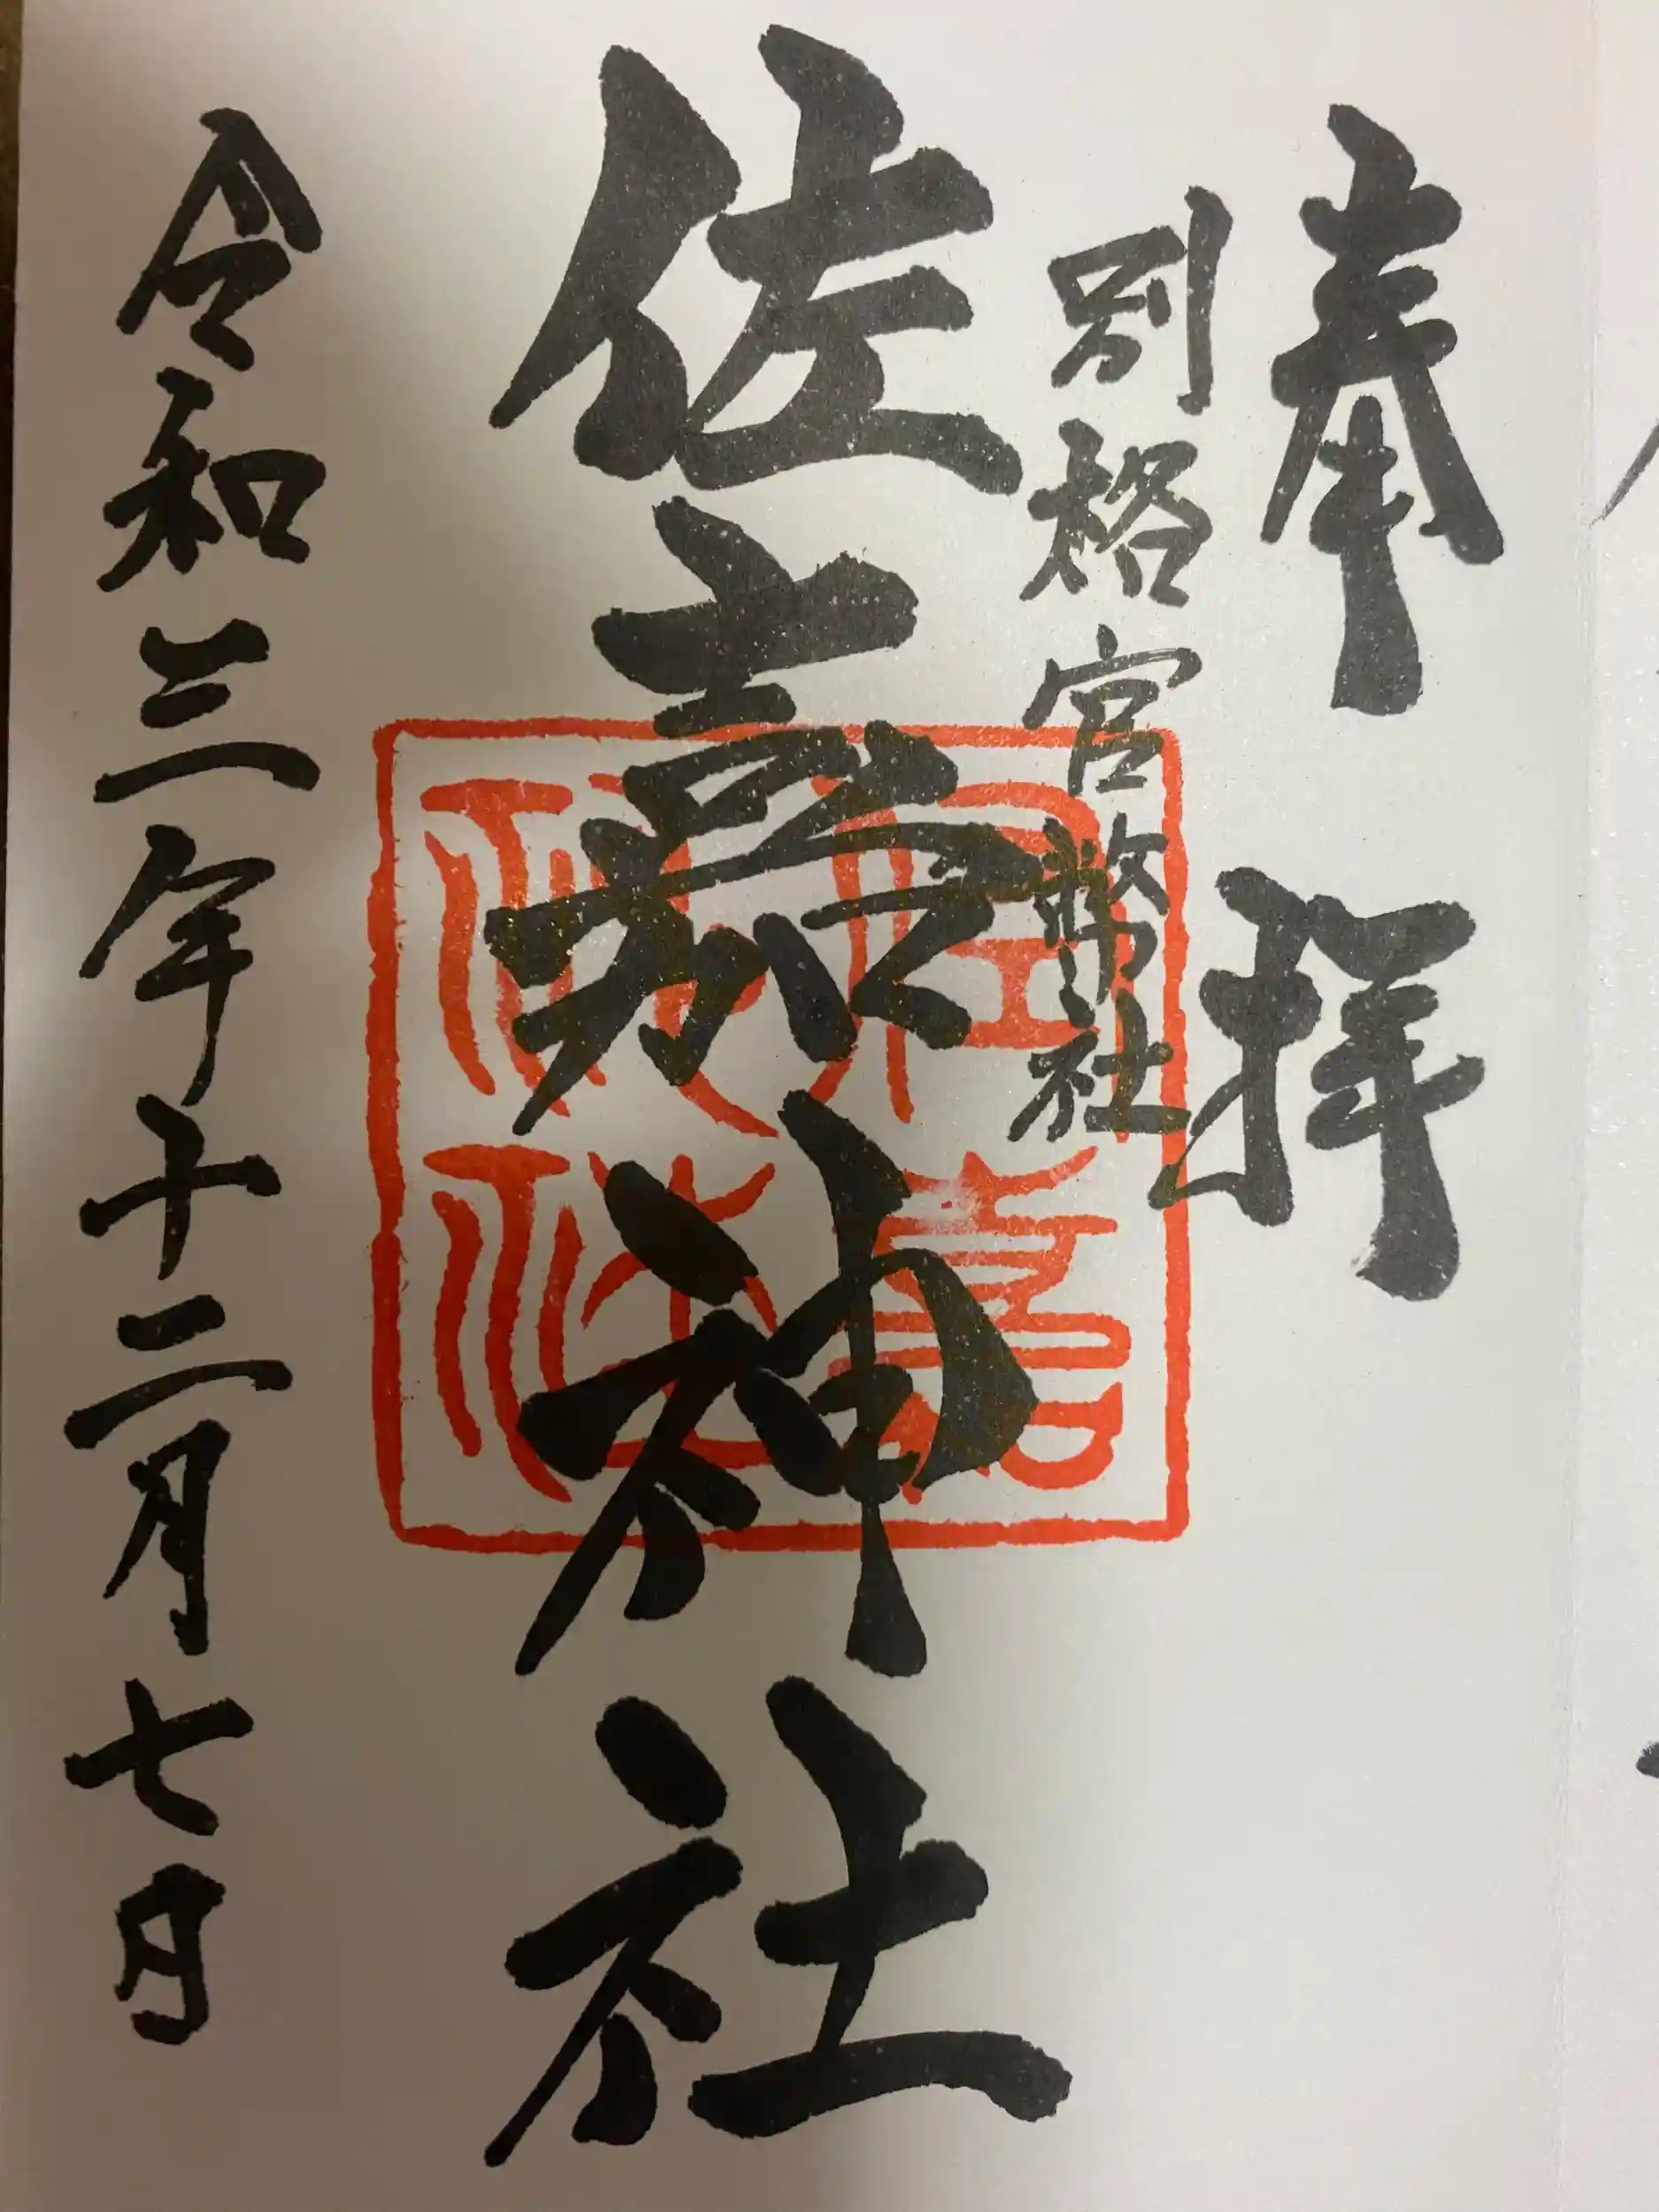 奉拝
別格官幣社
佐嘉神社
佐嘉神社
令和三年十二月七日